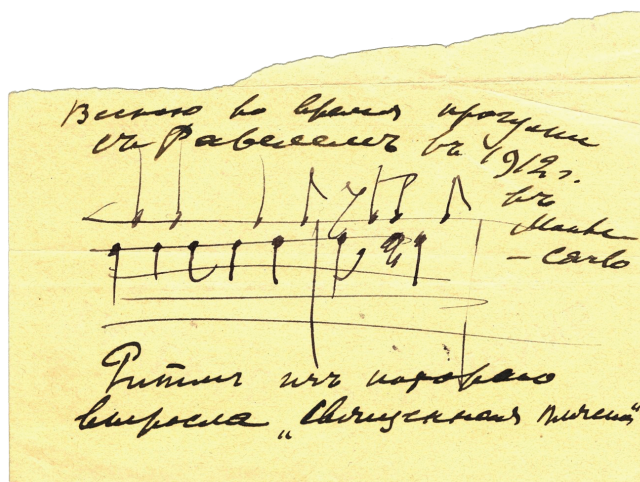 Весною во время прогулки
съ Равелемъ въ 1912 г.
въ
Монте
-Carlo
Ритмъ изъ котораго
выросла „Священная пляска"